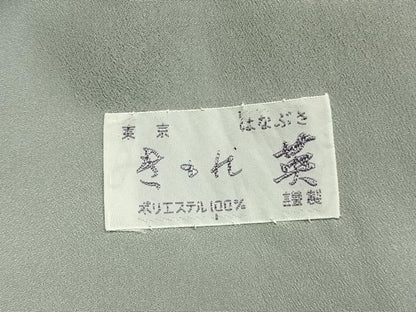 東京 はなぶさ
きもの 英
ポリエステル100% 謹製